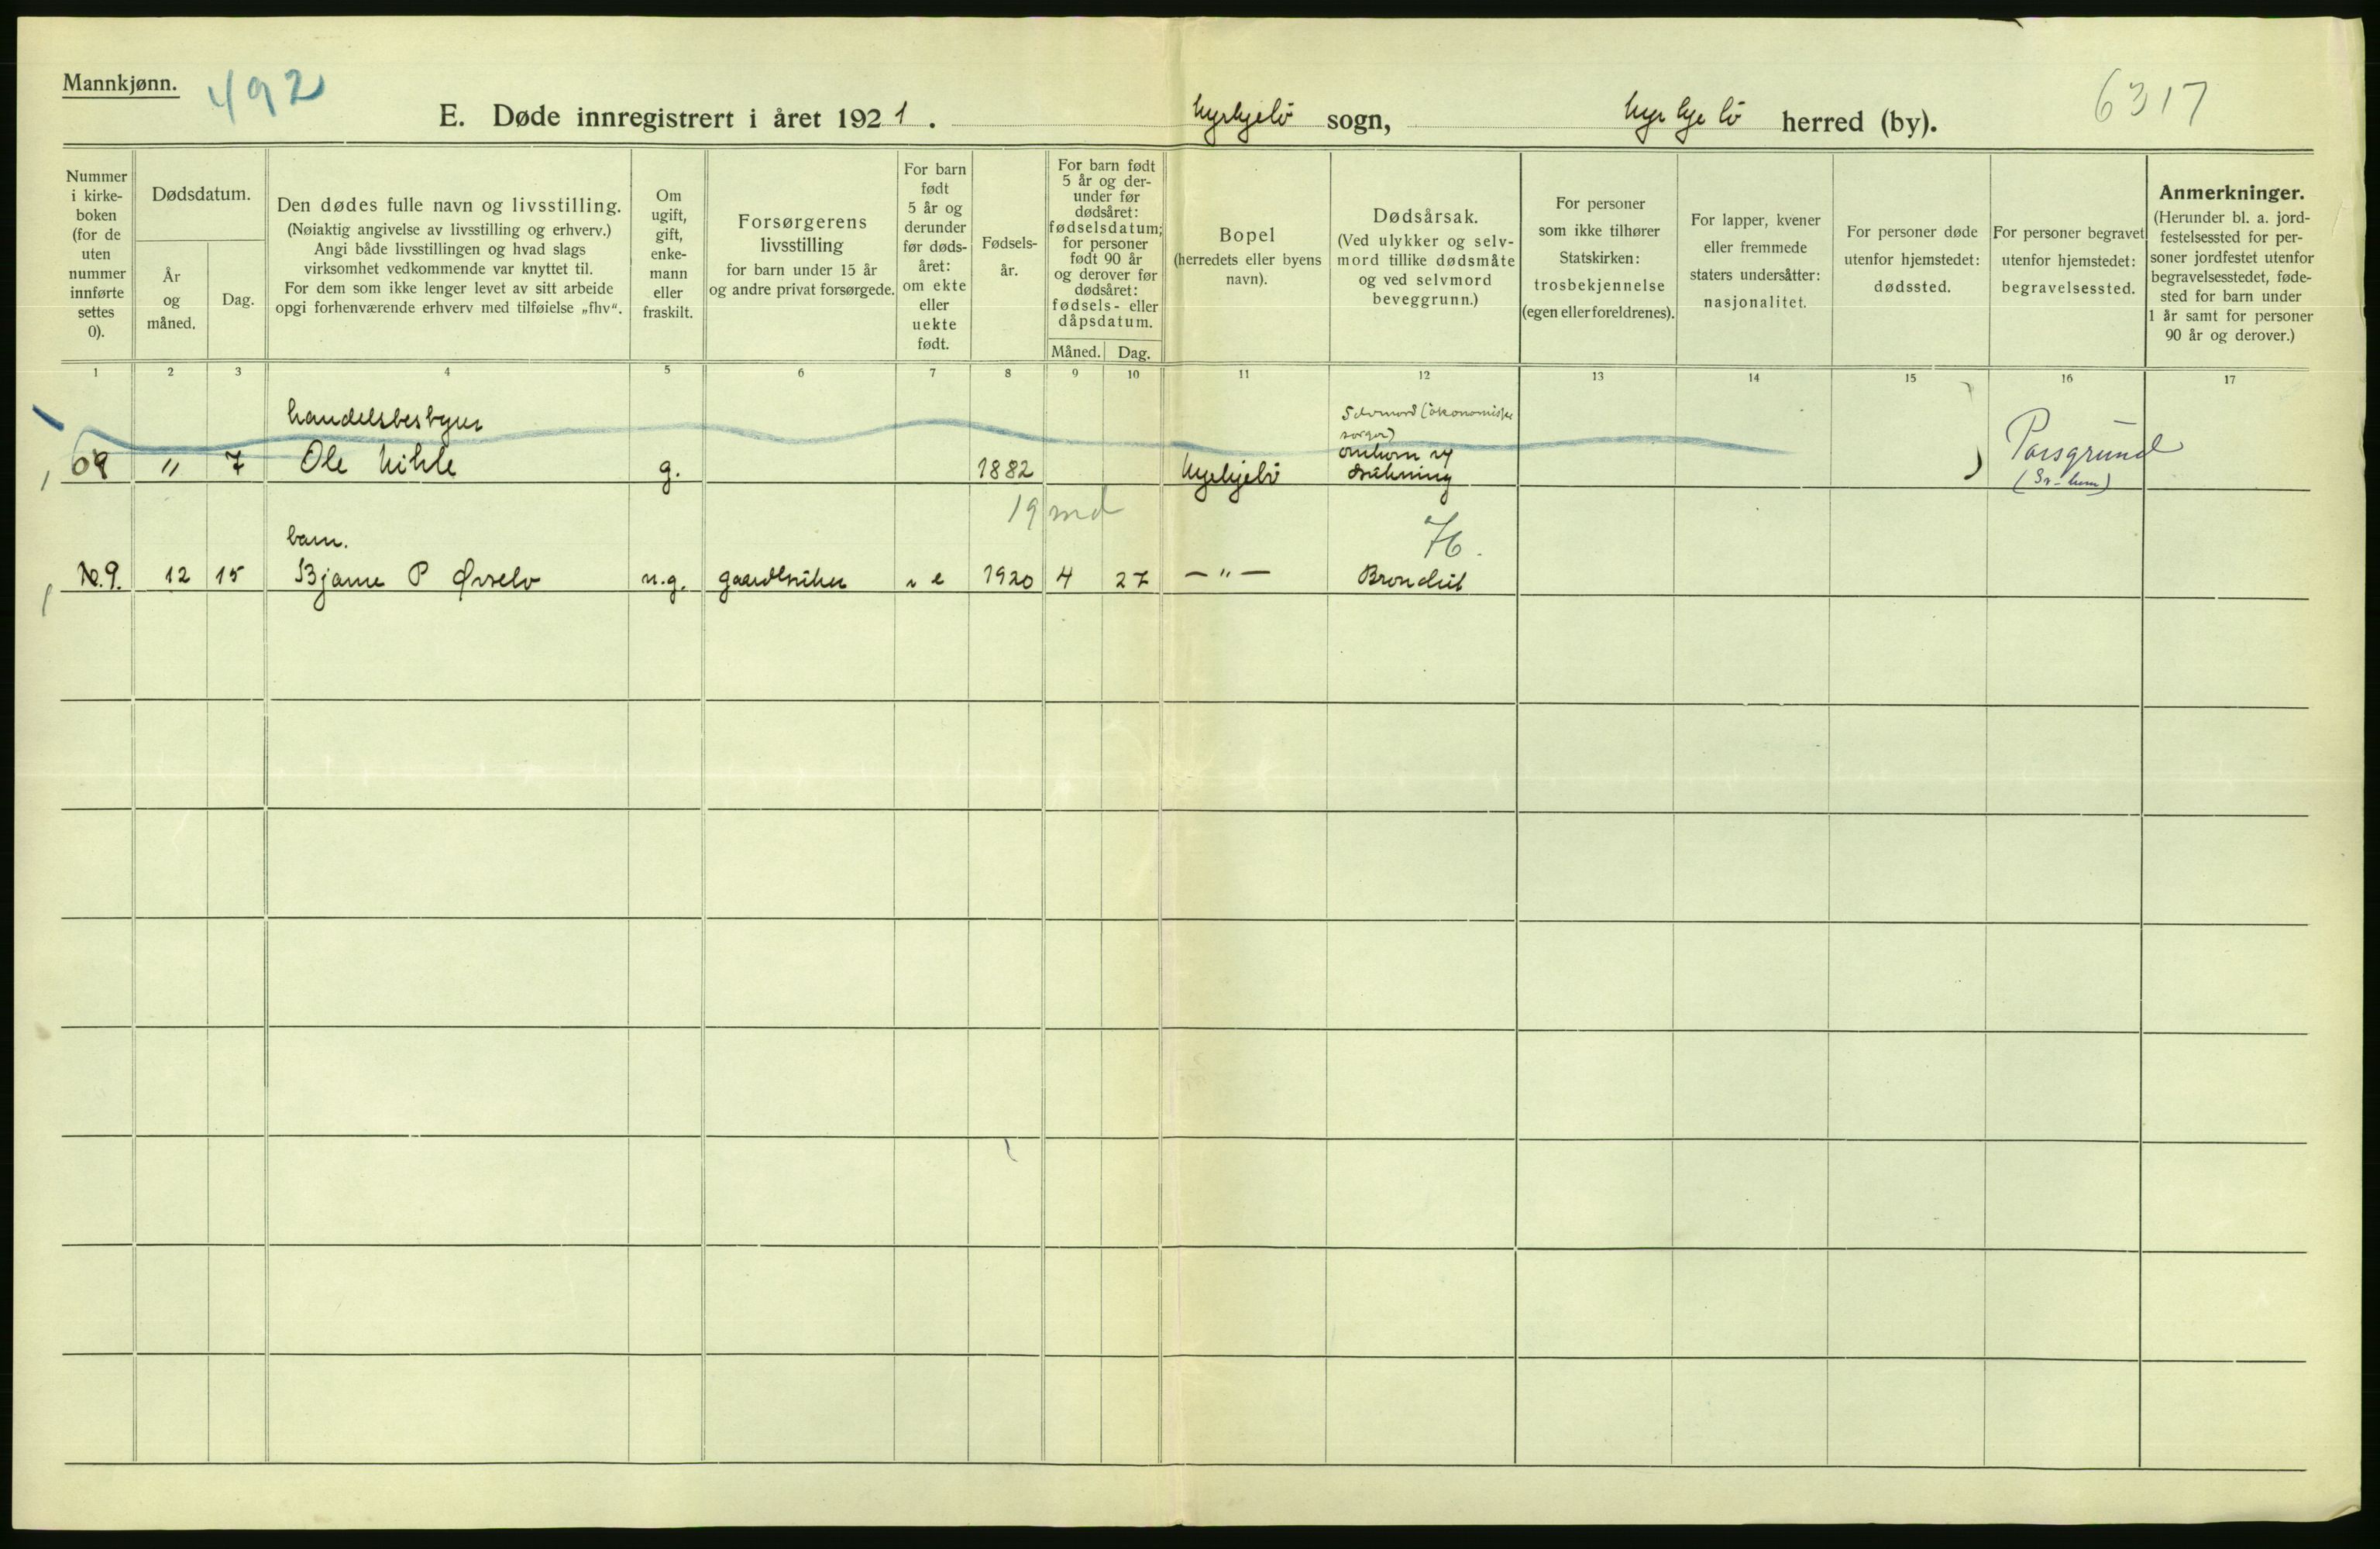 Mannkjønn.
492
E. Døde innregistrert i året 1921.
sogn,
herred (by).
6317
Nummer
i kirke-
boken
(for de
uten
nummer
innførte
settes
0).
Dødsdatum.
År
og
måned.
Dag.
Den dødes fulle navn og livsstilling.
(Nøiaktig angivelse av livsstilling og erhverv.)
Angi både livsstillingen og hvad slags
virksomhet vedkommende var knyttet til.
For dem som ikke lenger levet av sitt arbeide
opgi forhenværende erhverv med tilføielse „fhv“.
Om
ugift,
gift,
enke-
mann
eller
fraskilt.
Forsørgerens
livsstilling
for barn under 15 år
og andre privat forsørgede.
For barn
født
5 år og
derunder
før døds-
året:
om ekte
eller
uekte
født.
Fødsels-
år.
For barn født
5 år og der-
under før
dødsåret:
fødselsdatum;
for personer
født 90 år
og derover før
dødsåret:
fødsels- eller
dåpsdatum.
Måned.
Dag.
Bopel
(herredets eller byens
navn).
Dødsårsak.
(Ved ulykker og selv-
mord tillike dødsmåte
og ved selvmord
beveggrunn.)
For personer
som ikke tilhører
Statskirken:
trosbekjennelse
(egen eller foreldrenes).
For lapper, kvener
eller fremmede
staters undersåtter:
nasjonalitet.
For personer døde
utenfor hjemstedet:
dødssted.
For personer begravet
utenfor hjemstedet:
begravelsessted.
Anmerkninger.
(Herunder bl. a. jord-
festelsessted for per-
soner jordfestet utenfor
begravelsesstedet, føde-
sted for barn under
1 år samt for personer
90 år og derover.)
1 2 3 4 5 6 7 8 9 10 11 12 13 14 15 16 17
handelsbestyrer
Selvmord (økonomiske
sorger)
omkom ved
drukning
" 7 Ole g. 1882
Porsgrund
19 md
76.
barn.
No. 9. 12 15 Bjarne P u.g. gaardbruker e 1920 4 27 — " — Bronchit